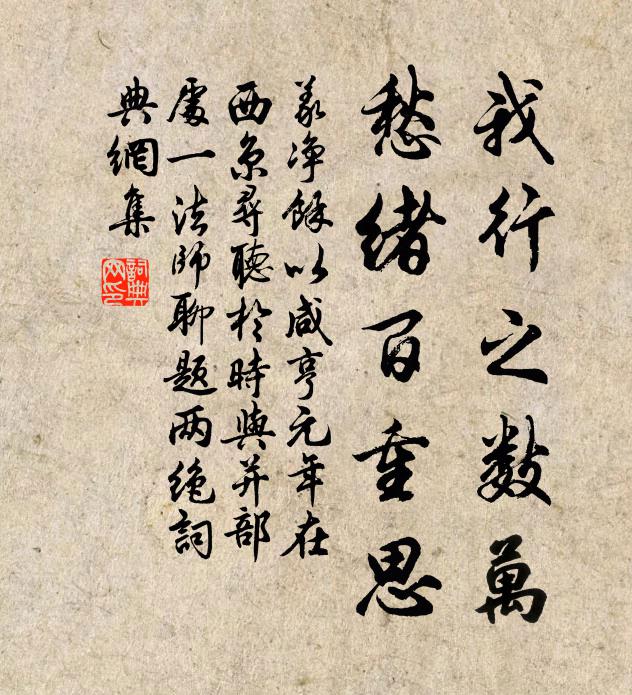 我行之數萬
愁緒百重思
義淨餘以咸亨元年在
西京尋聽於時與并部
處一法師聊題兩絕詞
典網集
詞典网印